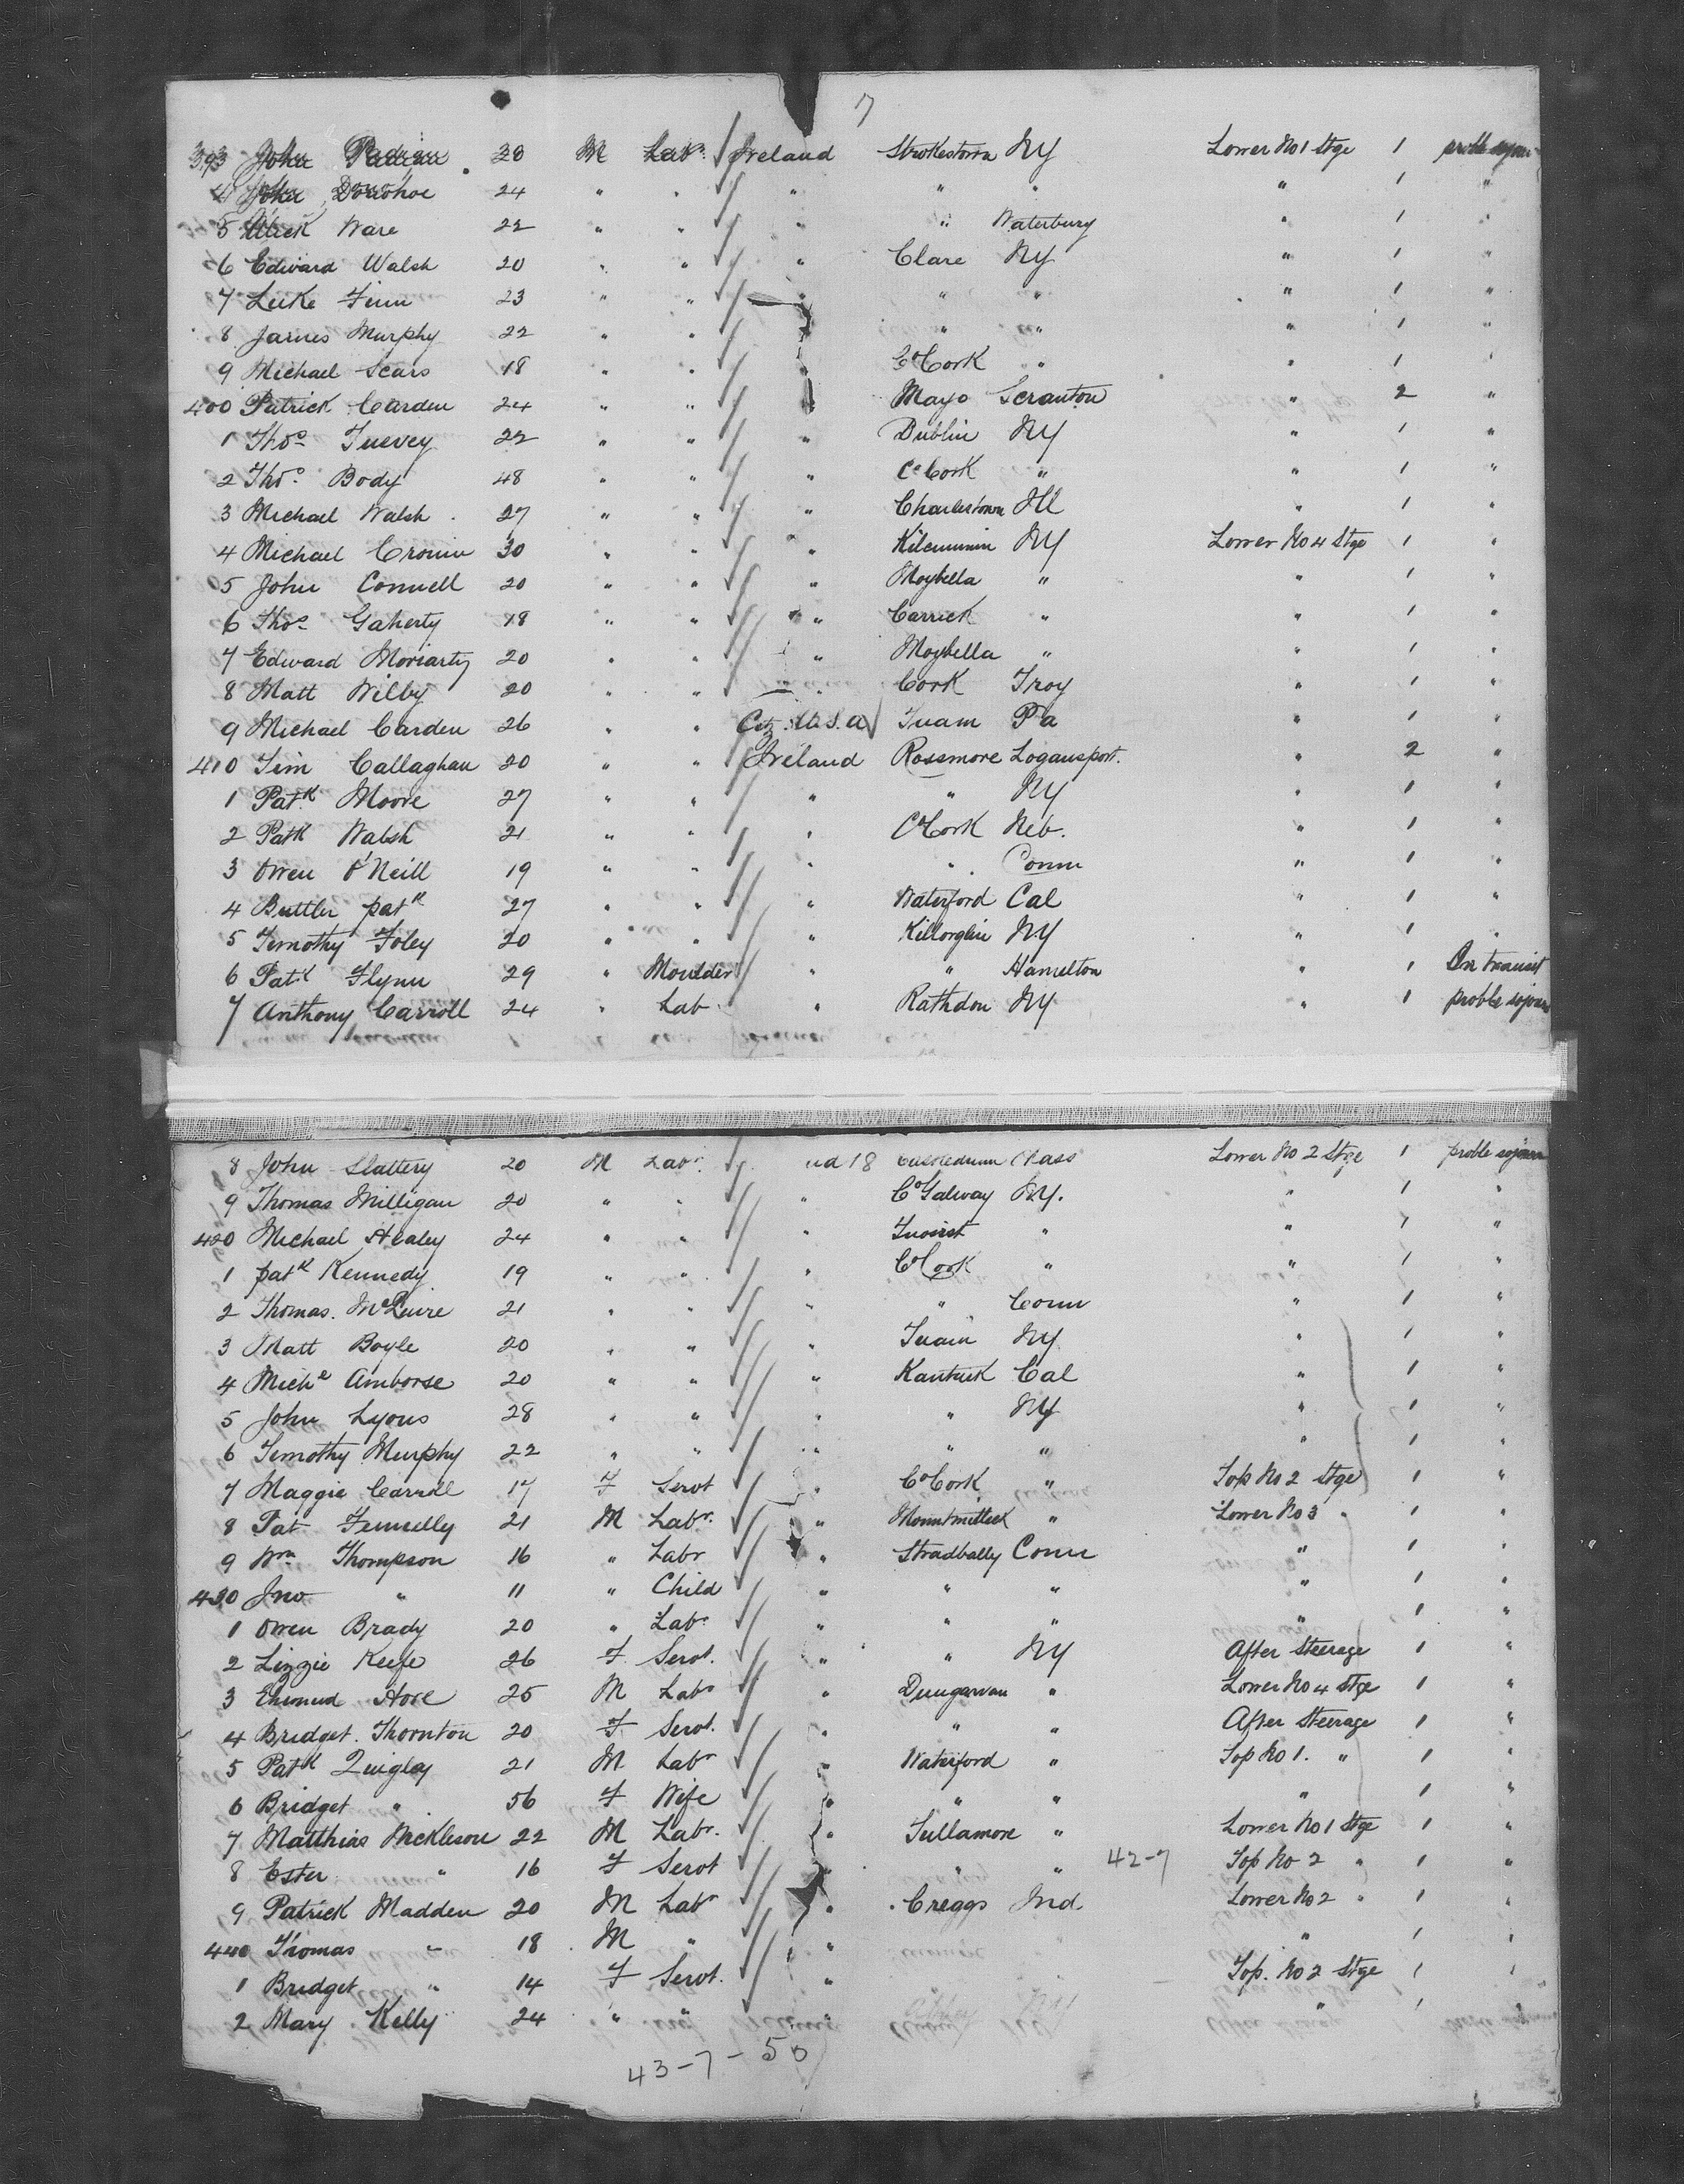 7
393 John Padian 20 M Labr Ireland Strokestown NY Lower No 1 Stge 1 proble sojour
4 John Donohoe 24 " " " " " " 1 "
5 Mick Ware 22 " " " " Waterbury " 1 "
6 Edward Walsh 20 " " " Clare NY " 1 "
7 Luke Finn 23 " " " " " " 1 "
8 James Murphy 22 " " " " " 1 "
9 Michael Scars 18 " " Co Cork " " 1 "
400 Patrick Carden 24 " " Mayo Scranton " 2 "
1 Thos Tuevey 22 " " " Dublin NY " 1 "
2 Thos Body 48 " " " Co Cork " " 1 "
3 Michael Walsh 27 " " " Charlestown Ill " 1 "
4 Michael Cronin 30 " " " Kilcummin NY Lower No 4 Stge 1 "
5 John Connell 20 " " " Moybella " " 1 "
6 Thos Gaherty 18 " " " Carrick " " 1 "
7 Edward Moriarty 20 " " " Moybella " " 1 "
8 Matt Wilby 20 " " " Cork Troy " 1 "
9 Michael Carden 26 " " Citz. U.S.A Tuam Pa " 1 "
410 Tim Callaghan 20 " " Ireland Rossmore Logansport. " 2 "
1 Patk Moore 27 " " " " NY " 1 "
2 Patk Walsh 21 " " " Co Cork Neb. " 1 "
3 Owen O'Neill 19 " " " " Conn " 1 "
4 Buttler patk 27 " " " Waterford Cal " 1 "
5 Timothy Foley 20 " " " Killorglin NY " 1 "
6 Patk Flynn 29 " Moulder " " Hamelton " 1 In transit
7 Anthony Carroll 24 " Lab " Rathdon NY " 1 proble sojour
8 John Slattery 20 M Labr nd 18 Castledrum Mass Lower No 2 Stge 1 proble sojourn
9 Thomas Milligan 20 " " " Co Galway NY. " 1 "
420 Michael Healey 24 " " " Tuosist " " 1 "
1 patk Kennedy 19 " " " Co Cork " " 1 "
2 Thomas. McGuire 21 " " " " Conn " 1 "
3 Matt Boyle 20 " " " Tuam NY " 1 "
4 Miche Amborse 20 " " " Kanturk Cal " 1 "
5 John Lyons 28 " " " " NY " 1 "
6 Timothy Murphy 22 " " " " " " 1 "
7 Maggie Carroll 17 F Servt " Co Cork " Top No 2 Stge 1 "
8 Pat Fennelly 21 M Labr. " Mountmilleck " Lower No 3 " 1 "
9 Wm Thompson 16 " Labr " Stradbally Conn " 1 "
430 Jno " 11 " Child " " " " 1 "
1 Owen Brady 20 " Labr " " " " 1 "
2 Lizzie Keefe 26 F Servt. " " NY After Steerage 1 "
3 Edmund Hore 25 M Labr " Dungarvan " Lower No 4 Stge 1 "
4 Bridget. Thornton 20 F Servt. " " " After Steerage 1 "
5 Patk Quigley 21 M Labr " Waterford " Top No 1. " 1 "
6 Bridget " 56 F Wife " " " " 1 "
7 Matthias Mickleson 22 M Labr. " Tullamore " Lower No 1 Stge 1 "
8 Ester " 16 F Servt " " " 42-7 Top No 2 " 1 "
9 Patrick Madden 20 M Labr " Creggs Ind. Lower No 2 " 1 "
440 Thomas " 18 M " " " 1 "
1 Bridget " 14 F Servt. " Top. No 2 Stge 1 "
2 Mary Kelly 24 " " " " 1 "
43-7-50